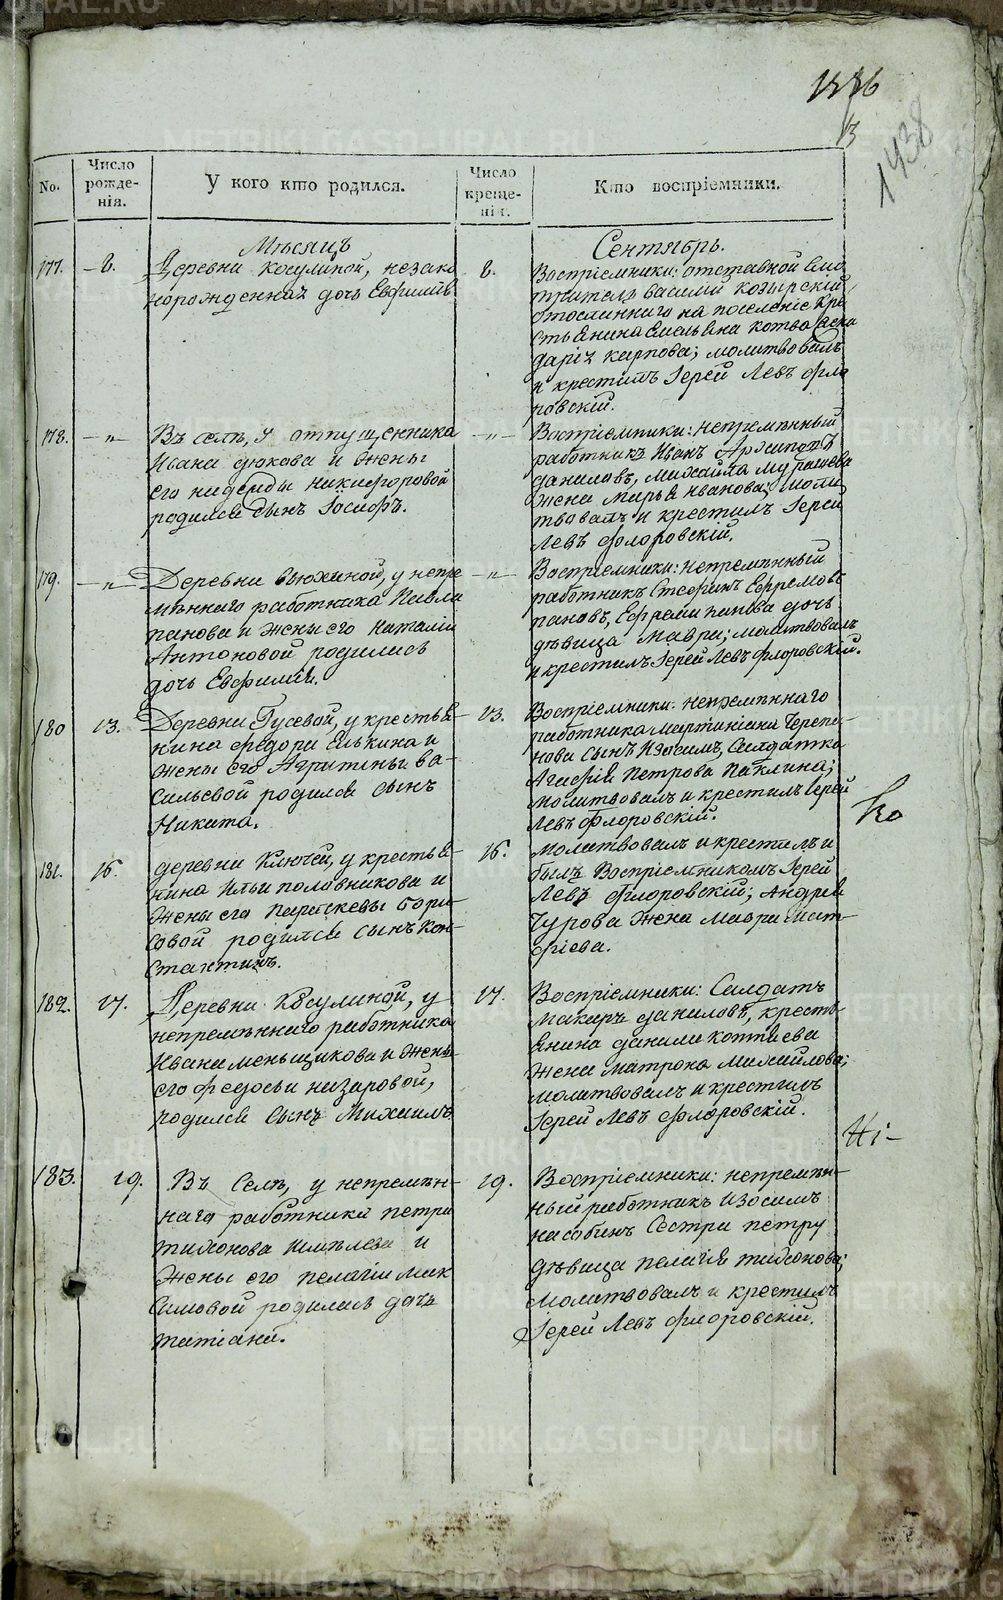 METRIKI.GASO-URAL.RU
1438
No.
Число рожде-нія.
У кого кто родился.
Число креще-нія.
Кто воспріемники.
Мѣсяцъ
Сентябрь.
177.
8.
Деревни Косулиной, незако
норожденная дочь Евфимія
8.
Воспріемники: отставной
Василій Козырскій,
на поселеніе кре
стьянина Емельяна
Дарія Карпова; молитвовалъ
и крестилъ Іерей Левъ Фло
ровскій.
178.
— „ —
Въ селѣ, у отпущенника
Ивана Дюкова и жены
его Никифоровой
родился сынъ Іосифъ.
— „ —
Воспріемники: непремѣнный
работникъ Иванъ Архиповъ
Даниловъ, Михайла Мурашева
жена Марья Иванова; моли
твовалъ и крестилъ Іерей
Левъ Флоровскій.
179.
— „ —
Деревни Вьюхиной, у непре
мѣннаго работника Павла
Панова и жены его Наталіи
Антоновой родилась
дочь Евфимія.
— „ —
Воспріемники: непремѣнный
работникъ Стефанъ Ефремовъ
Пановъ, Ефрема Панова дочь
дѣвица Мавра; молитвовалъ
и крестилъ Іерей Левъ Флоровскій.
180
13.
Деревни Гусевой, у крестья-
нина Федора Елькина и
жены его Агрипины Ва-
сильевой родился сынъ
Никита.
13.
Воспріемники: непремѣннаго
работника Мартиніана Черепа-
нова сынъ Изосимъ, Салдатка
Агафія Петрова Паклина;
молитвовалъ и крестилъ Іерей
Левъ Флоровскій.
ко
181.
16.
деревни Ключей, у крестья-
нина Ильи Половникова и
жены его Параскевы Бори-
совой родился сынъ Кон-
стантинъ.
16.
Молитвовалъ и крестилъ и
былъ Воспріемникомъ Іерей
Левъ Флоровскій; Андрея
Чурова жена Мавра Мат-
фіева.
182.
17.
Деревни Косулиной, у
непремѣннаго работника
Ивана Меньщикова и жены
его Федосьи Назаровой,
родился сынъ Михаилъ
17.
Воспріемники: Салдатъ
Макаръ Даниловъ, кресть-
янина Данилы Коптяева
жена Матрона Михайлова;
молитвовалъ и крестилъ
Іерей Левъ Флоровскій.
183.
19.
Въ Селѣ, у непремѣн-
наго работника Петра
Тихонова и
жены его Пелагіи Мак
симовой родилась дочь
Татіана.
19.
Воспріемники: непремѣн-
ный работникъ Изосимъ
Насобинъ Сестра Петру
дѣвица Пелагія Тихонова;
молитвовалъ и крестилъ
Іерей Левъ Флоровскій.